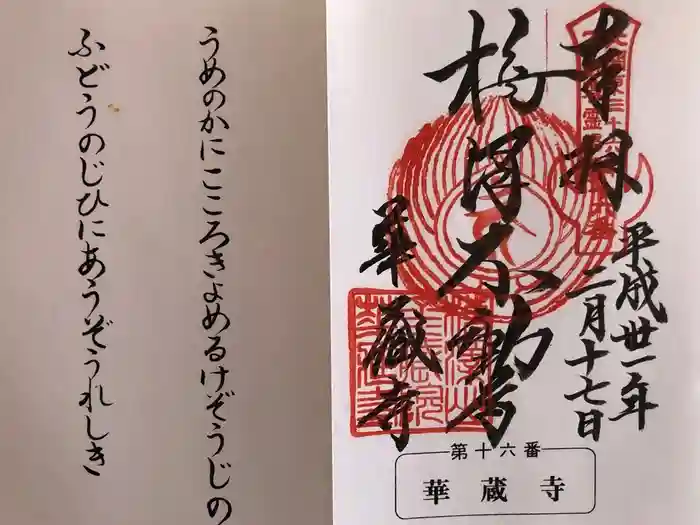 うめのかにこころきよめるけぞうじの
ふどうのじひにあうぞうれしき
奉拝
平成卅一年
二月十七日
梅澤不動
華藏寺
第十六番
華蔵寺